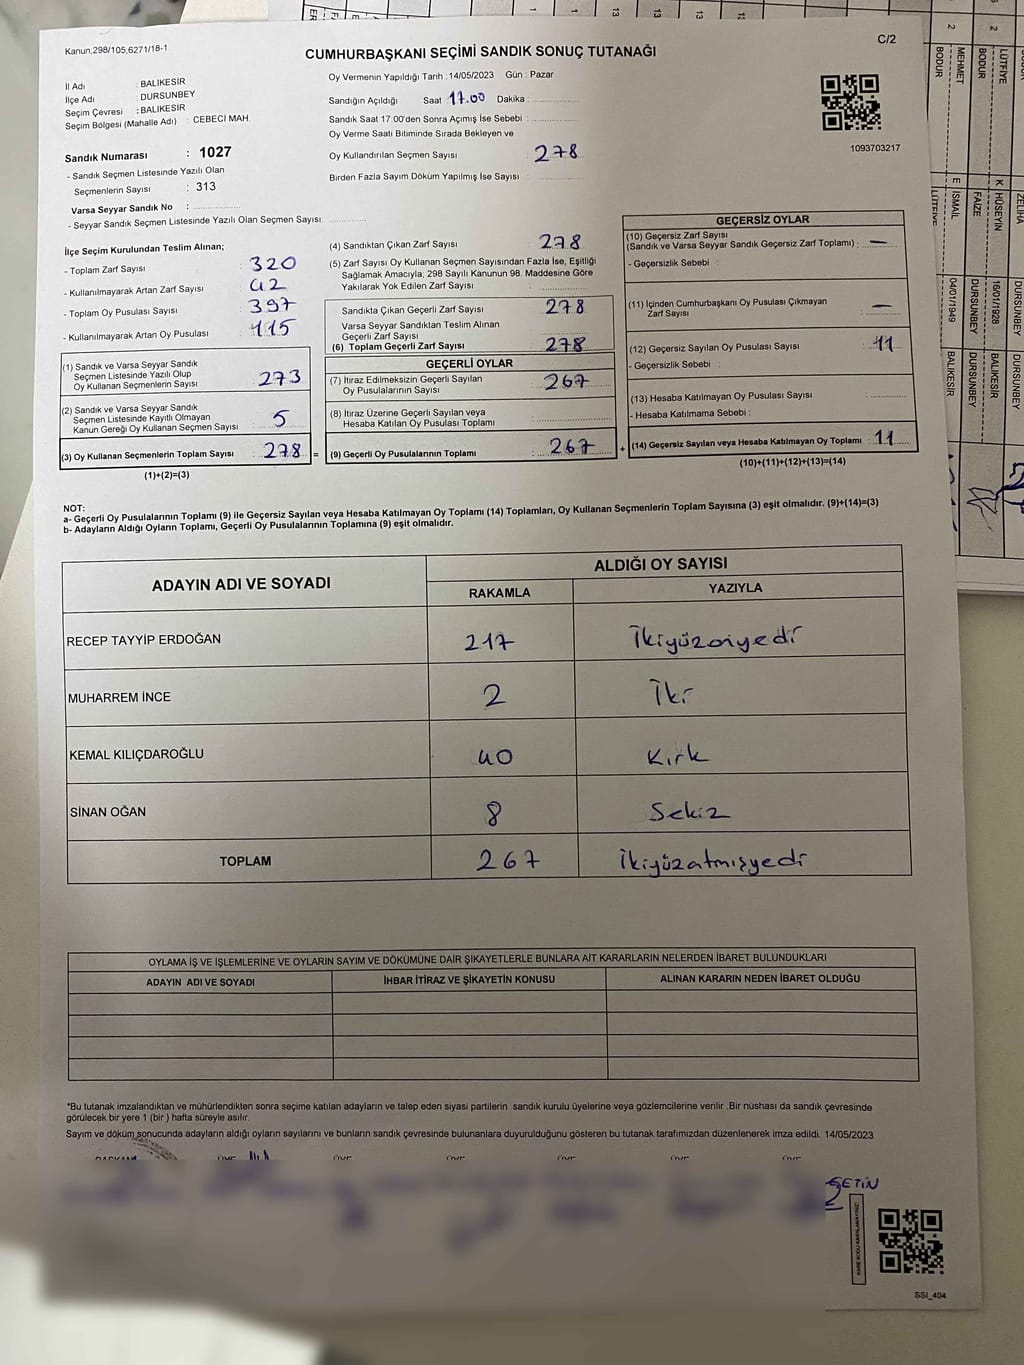 Kanun;298/105,6271/18-1
C/2
CUMHURBAŞKANI SEÇİMİ SANDIK SONUÇ TUTANAĞI
İl Adı : BALIKESİR
İlçe Adı : DURSUNBEY
Seçim Çevresi : BALIKESİR
Seçim Bölgesi (Mahalle Adı) : CEBECİ MAH.
Oy Vermenin Yapıldığı Tarih : 14/05/2023 Gün : Pazar
Sandığın Açıldığı Saat 17.00 Dakika :
Sandık Saat 17:00'den Sonra Açımış İse Sebebi :
Oy Verme Saati Bitiminde Sırada Bekleyen ve
Oy Kullandırılan Seçmen Sayısı : 278
Birden Fazla Sayım Döküm Yapılmış İse Sayısı :
1093703217
Sandık Numarası : 1027
- Sandık Seçmen Listesinde Yazılı Olan
Seçmenlerin Sayısı : 313
Varsa Seyyar Sandık No :
- Seyyar Sandık Seçmen Listesinde Yazılı Olan Seçmen Sayısı:
İlçe Seçim Kurulundan Teslim Alınan;
- Toplam Zarf Sayısı : 320
- Kullanılmayarak Artan Zarf Sayısı : 42
- Toplam Oy Pusulası Sayısı : 397
- Kullanılmayarak Artan Oy Pusulası : 115
(1) Sandık ve Varsa Seyyar Sandık
Seçmen Listesinde Yazılı Olup
Oy Kullanan Seçmenlerin Sayısı : 273
(2) Sandık ve Varsa Seyyar Sandık
Seçmen Listesinde Kayıtlı Olmayan
Kanun Gereği Oy Kullanan Seçmen Sayısı : 5
(3) Oy Kullanan Seçmenlerin Toplam Sayısı : 278 =
(1)+(2)=(3)
(4) Sandıktan Çıkan Zarf Sayısı : 278
(5) Zarf Sayısı Oy Kullanan Seçmen Sayısından Fazla İse, Eşitliği
Sağlamak Amacıyla, 298 Sayılı Kanunun 98. Maddesine Göre
Yakılarak Yok Edilen Zarf Sayısı :
Sandıkta Çıkan Geçerli Zarf Sayısı : 278
Varsa Seyyar Sandıktan Teslim Alınan
Geçerli Zarf Sayısı :
(6) Toplam Geçerli Zarf Sayısı : 278
GEÇERLİ OYLAR
(7) İtiraz Edilmeksizin Geçerli Sayılan
Oy Pusulalarının Sayısı : 267
(8) İtiraz Üzerine Geçerli Sayılan veya
Hesaba Katılan Oy Pusulası Toplamı :
(9) Geçerli Oy Pusulalarının Toplamı : 267 +
GEÇERSİZ OYLAR
(10) Geçersiz Zarf Sayısı
(Sandık ve Varsa Seyyar Sandık Geçersiz Zarf Toplamı) : —
- Geçersizlik Sebebi :
(11) İçinden Cumhurbaşkanı Oy Pusulası Çıkmayan
Zarf Sayısı : —
(12) Geçersiz Sayılan Oy Pusulası Sayısı : 11
- Geçersizlik Sebebi :
(13) Hesaba Katılmayan Oy Pusulası Sayısı :
- Hesaba Katılmama Sebebi :
(14) Geçersiz Sayılan veya Hesaba Katılmayan Oy Toplamı : 11
(10)+(11)+(12)+(13)=(14)
NOT:
a- Geçerli Oy Pusulalarının Toplamı (9) ile Geçersiz Sayılan veya Hesaba Katılmayan Oy Toplamı (14) Toplamları, Oy Kullanan Seçmenlerin Toplam Sayısına (3) eşit olmalıdır. (9)+(14)=(3)
b- Adayların Aldığı Oyların Toplamı, Geçerli Oy Pusulalarının Toplamına (9) eşit olmalıdır.
ADAYIN ADI VE SOYADI ALDIĞI OY SAYISI
RAKAMLA YAZIYLA
RECEP TAYYİP ERDOĞAN 217 İkiyüzoniyedi
MUHARREM İNCE 2 İki
KEMAL KILIÇDAROĞLU 40 Kırk
SİNAN OĞAN 8 Sekiz
TOPLAM 267 İkiyüzatmışyedi
OYLAMA İŞ VE İŞLEMLERİNE VE OYLARIN SAYIM VE DÖKÜMÜNE DAİR ŞİKAYETLERLE BUNLARA AİT KARARLARIN NELERDEN İBARET BULUNDUKLARI
ADAYIN ADI VE SOYADI İHBAR İTİRAZ VE ŞİKAYETİN KONUSU ALINAN KARARIN NEDEN İBARET OLDUĞU
*Bu tutanak imzalandıktan ve mühürlendikten sonra seçime katılan adayların ve talep eden siyasi partilerin sandık kurulu üyelerine veya gözlemcilerine verilir .Bir nüshası da sandık çevresinde
görülecek bir yere 1 (bir ) hafta süreyle asılır.
Sayım ve döküm sonucunda adayların aldığı oyların sayılarını ve bunların sandık çevresinde bulunanlara duyurulduğunu gösteren bu tutanak tarafımızdan düzenlenerek imza edildi. 14/05/2023
ÇETİN
SSI_404
MEHMET
BODUR
LÜTFİYE
BODUR
E İSMAİL
FAİZE
K HÜSEYİN
ZELİHA
04/01/1949
DURSUNBEY
16/01/1928
DURSUNBEY
BALIKESİR
DURSUNBEY
BALIKESİR
DURSUNBEY